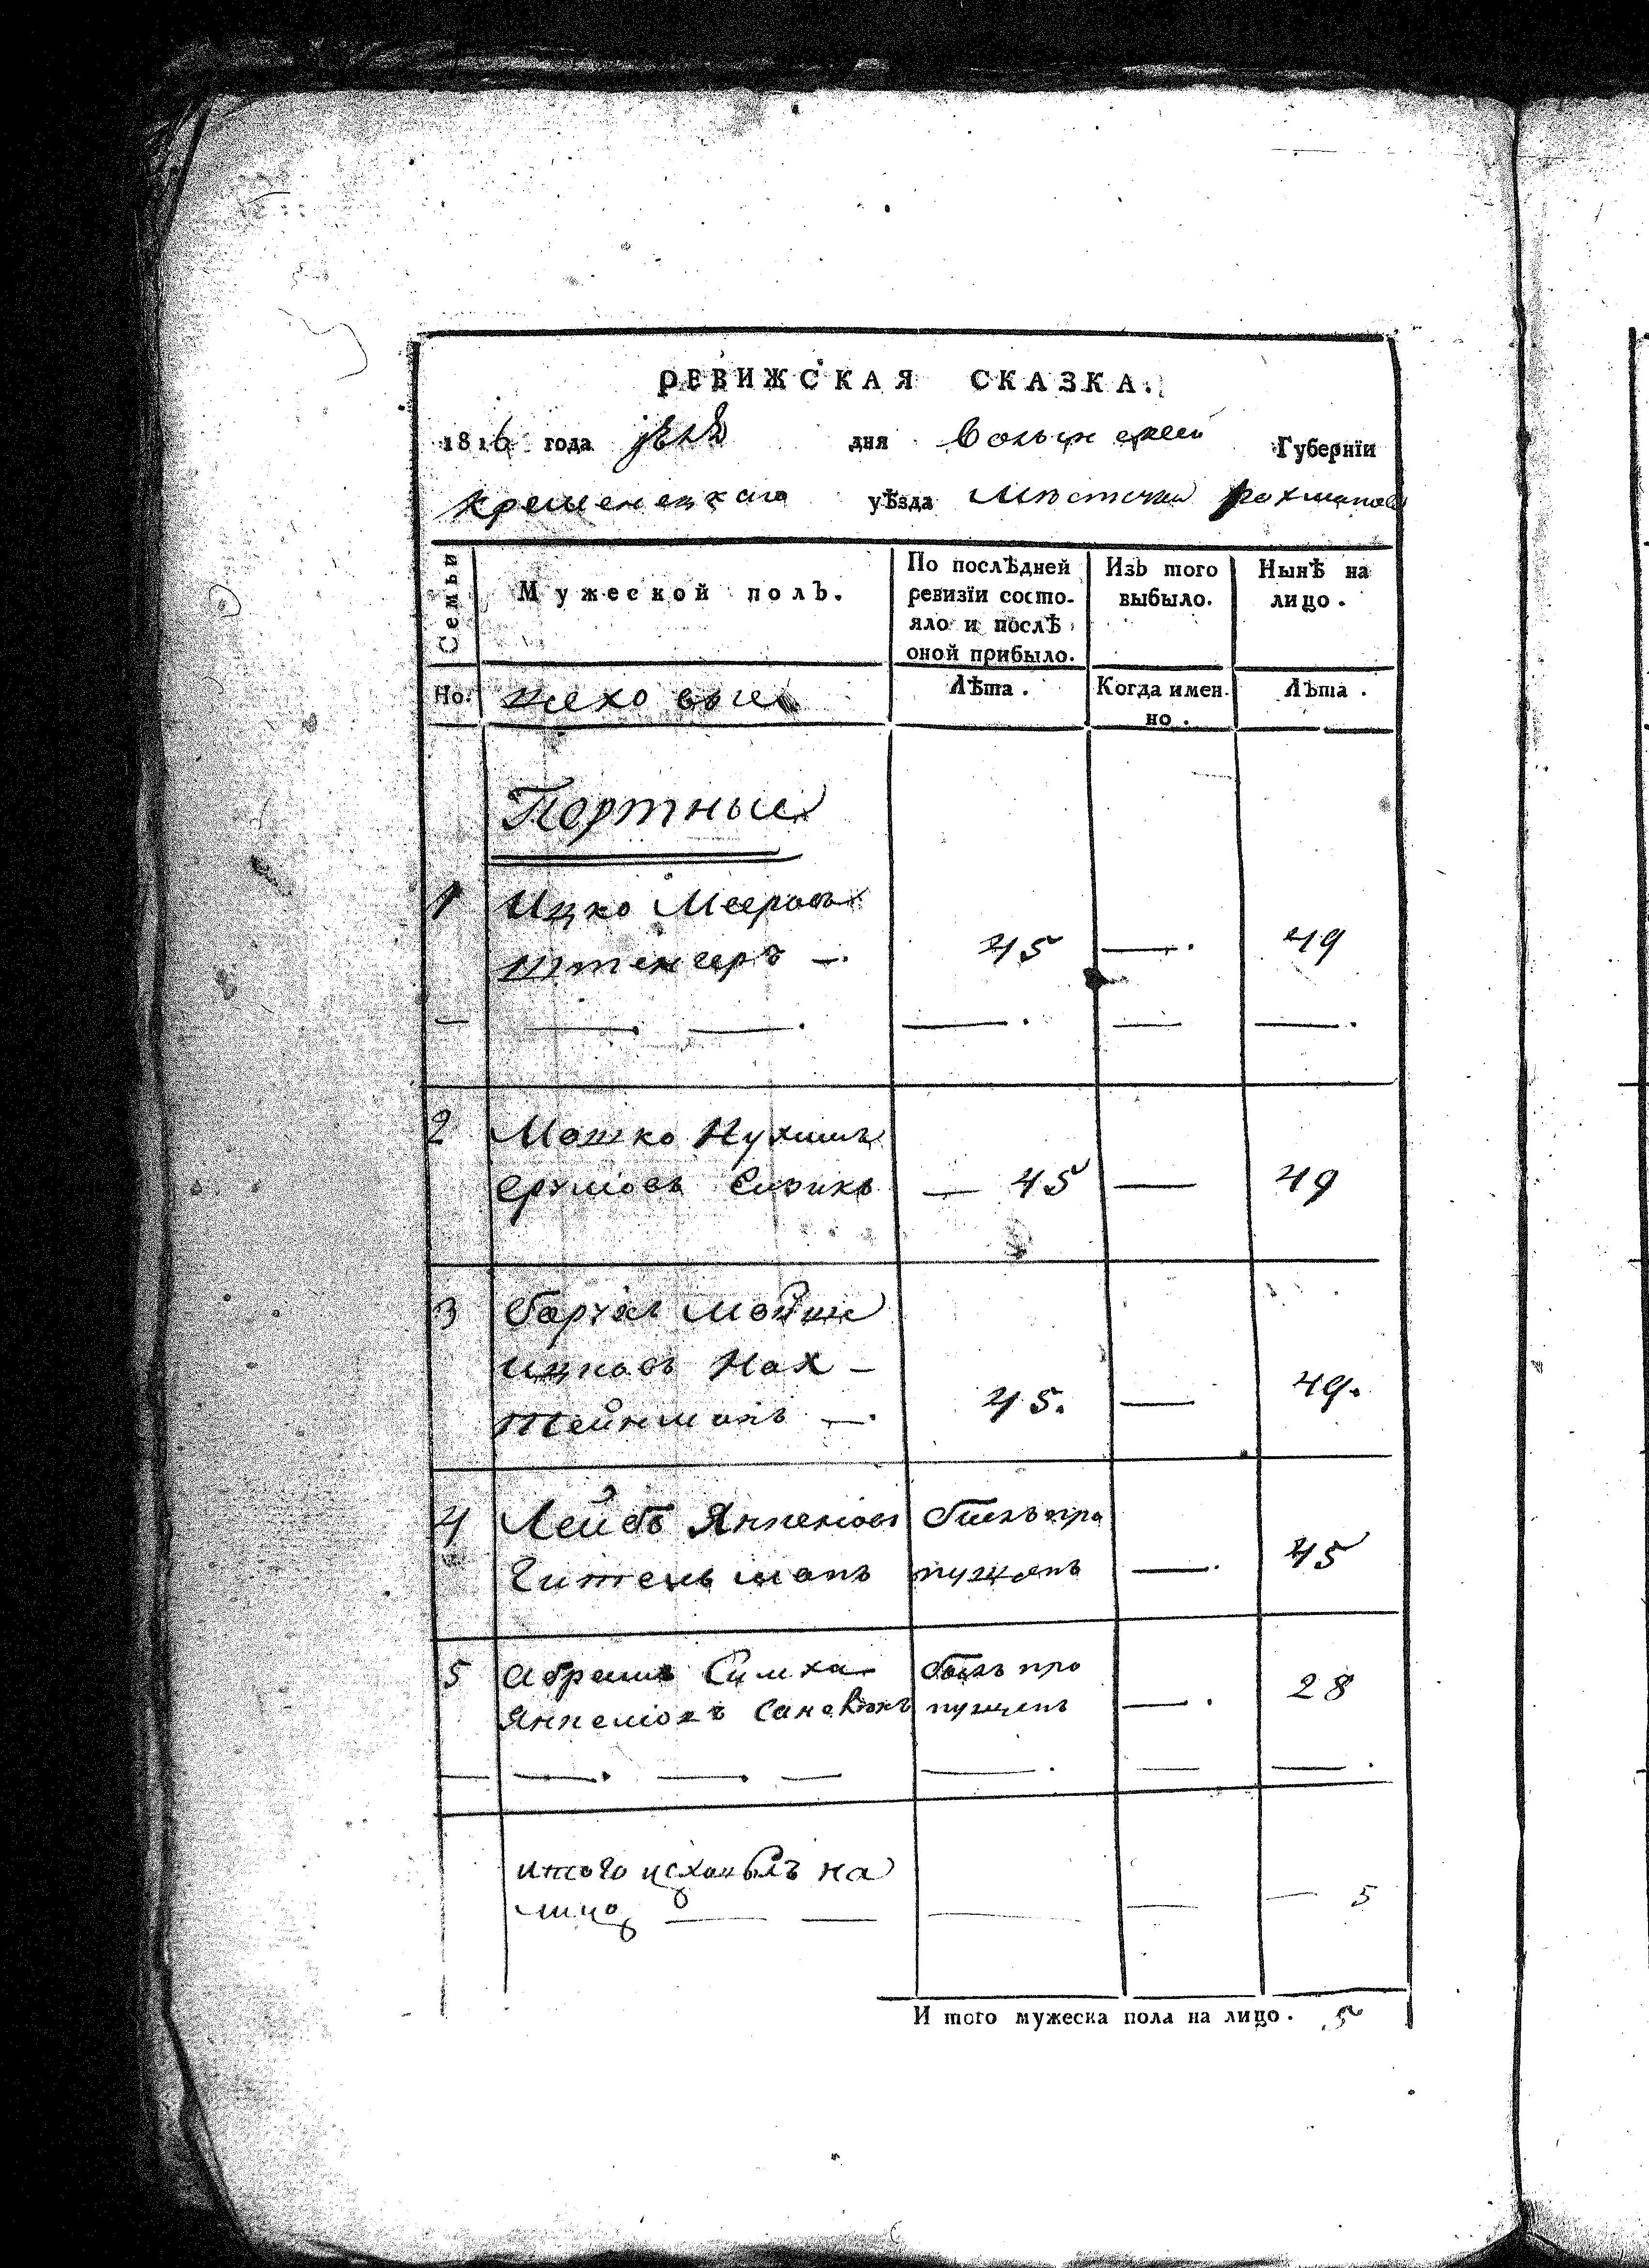 РЕВИЖСКАЯ СКАЗКА.
1816 года дня Волынской Губернїи
Кременецкаго уѣзда Местечка Рахманова
Семьи
Мужеской полъ.
По послѣдней ревизїи состо-
яло и послѣ
оной прибыло.
Изъ того
выбыло.
Нынѣ на
лицо.
Но. цеховые
Лѣта. Когда имен-
но. Лѣта.
Портные
1 Ицко Мееровъ
Штенгеръ —. 45 —. 49
— —. —. —. — —.
2 Мошко Нухимъ
Сруліовъ — 45 — 49
3 Мойше
Ицковъ Нах-
тейнманъ —. 45. — 49.
4 Лейбъ Янкеліовъ былъ про
Гительманъ пущенъ —. 45
5 Абрамъ Симха былъ про
Янкеліовъ пущенъ —. 28
— —. —. — —. — —.
итого цеховыхъ на
лицо — — — — — 5
И того мужеска пола на лицо. 5